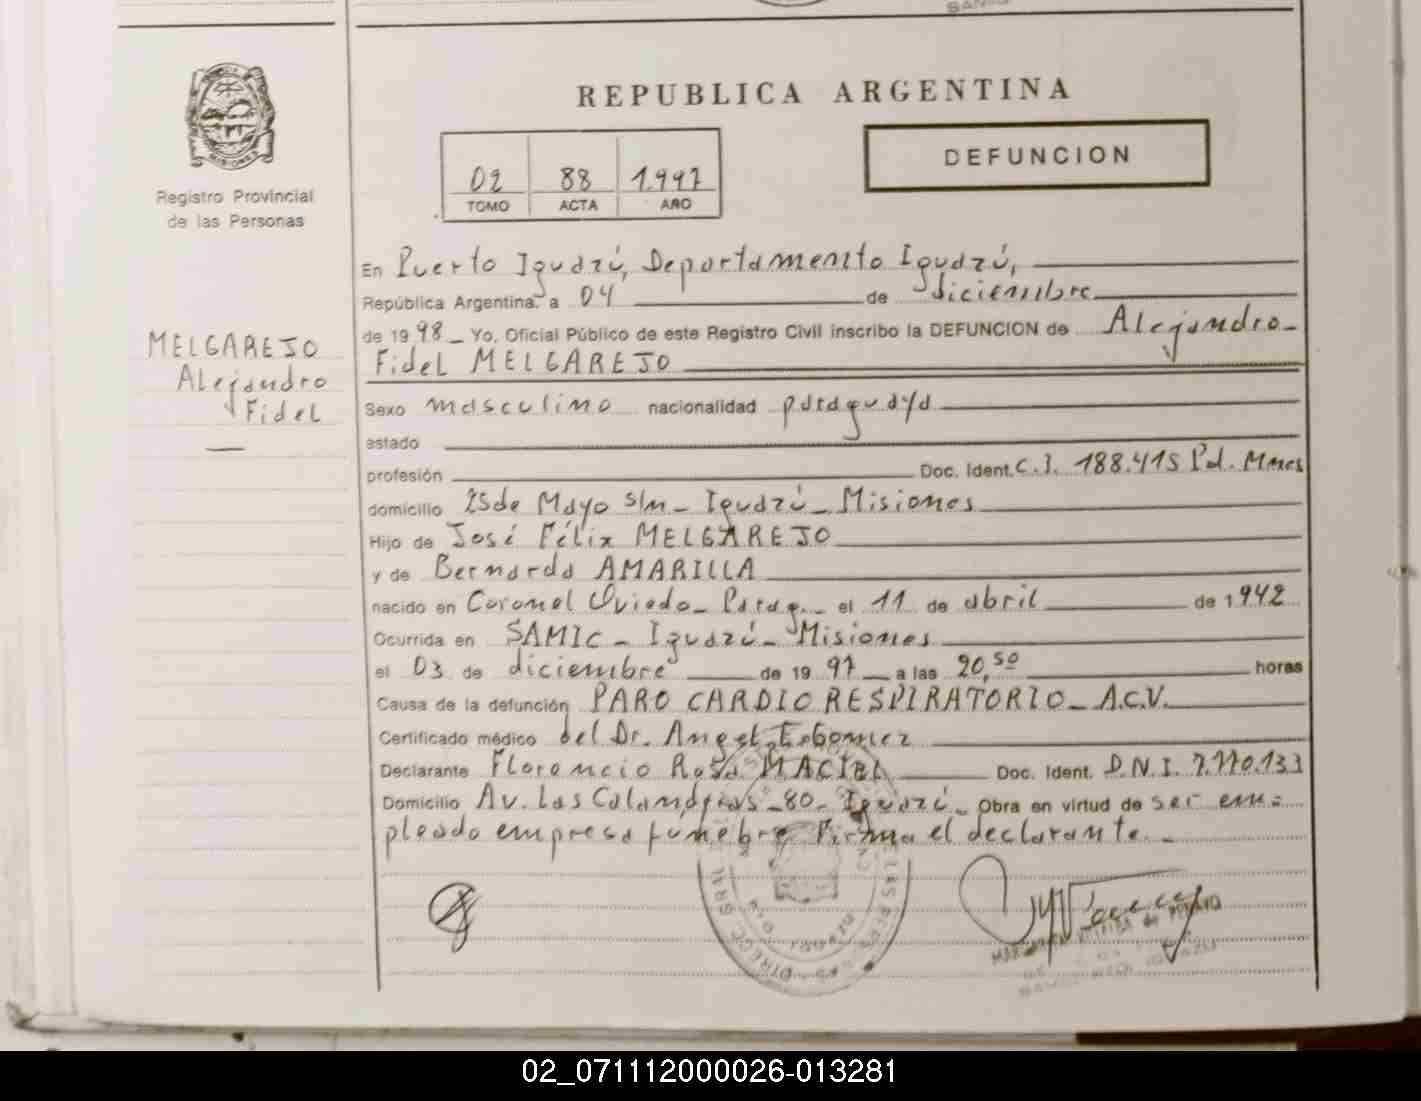 REPUBLICA ARGENTINA
DEFUNCION
02 88 1.997
TOMO ACTA AÑO
MISIONES
Registro Provincial
de las Personas
MELGAREJO
Alejandro
Fidel
En Puerto Iguazú, Departamento Iguazú,
República Argentina. a 04 de diciembre
de 1998 Yo, Oficial Público de este Registro Civil inscribo la DEFUNCION de Alejandro
Fidel MELGAREJO
Sexo masculino nacionalidad paraguaya
estado
profesión Doc. Ident. C.I. 188.415 Pol. Mnes
domicilio 25 de Mayo s/n - Iguazú - Misiones
Hijo de José Félix MELGAREJO
y de Bernarda AMARILLA
nacido en Coronel Oviedo - Parag. - el 11 de abril de 1942
Ocurrida en SAMIC - Iguazú - Misiones
el 03 de diciembre de 1997 a las 20,50 horas
Causa de la defunción PARO CARDIO RESPIRATORIO - A.C.V.
Certificado médico del Dr. Angel E. Gomez
Declarante Florencio Rosa MACIEL Doc. Ident. D.N.I. 7.170.133
Domicilio Av. Las Calandrias - 80 - Iguazú - Obra en virtud de ser em=
pleado empresa fúnebre Firma el declarante. -
02_071112000026-013281